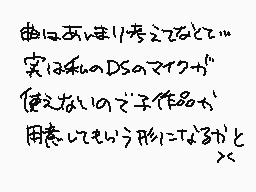 曲はあんまり考えてなくて…
実は私のDSのマイクが
使えないので子作品が
用意してもらう形になるかと
><